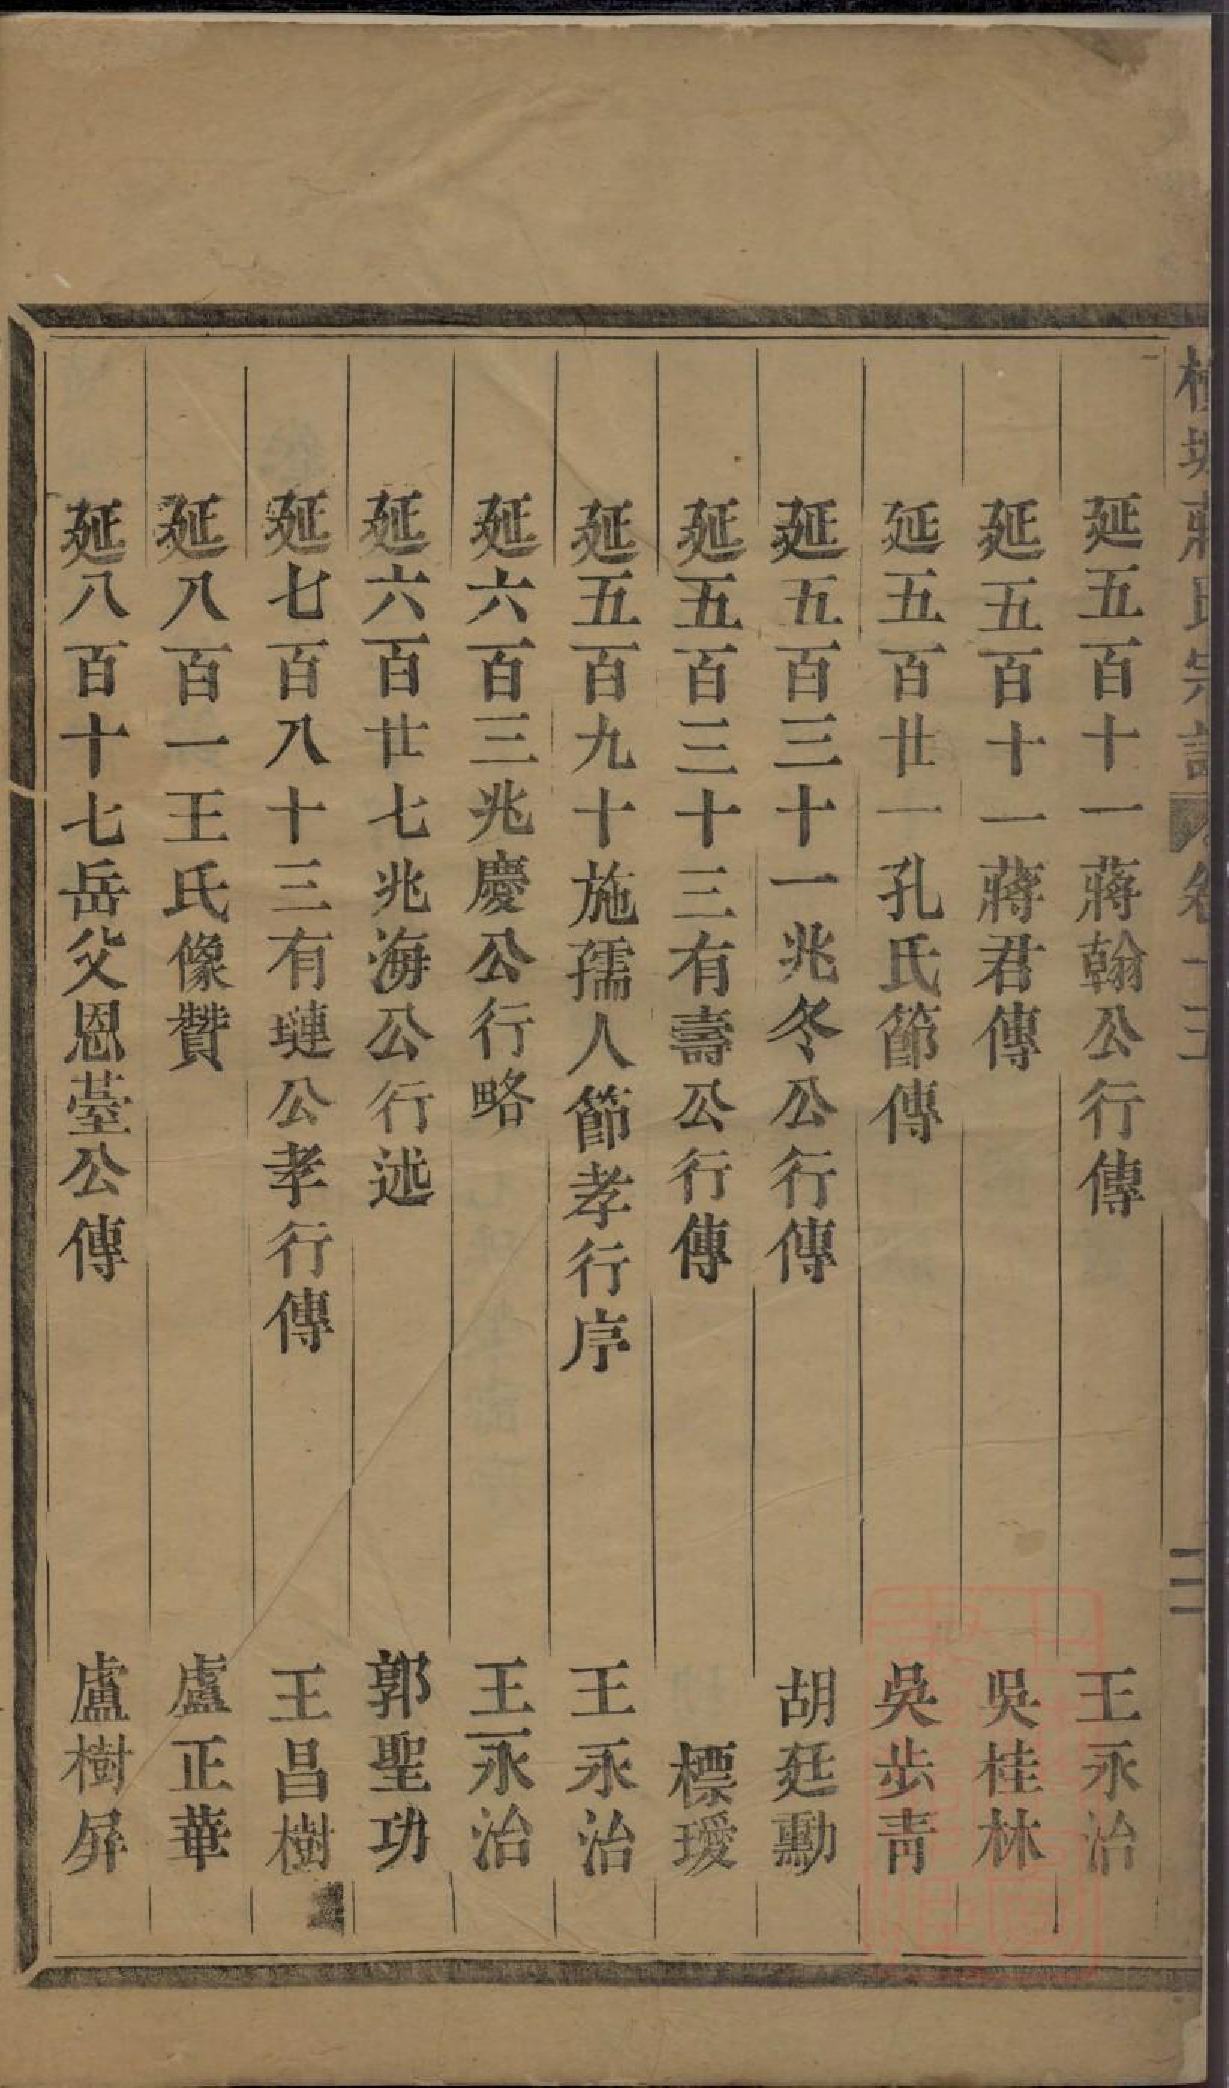 蔣氏宗譜 卷十三 二
延五百十一蔣翰公行傳 王永治
延五百十一蔣君傳 吳桂林
延五百廿一孔氏節傳 吳步青
延五百三十一兆冬公行傳 胡廷勳
延五百三十三有壽公行傳 標璦
延五百九十施孺人節孝行序 王永治
延六百三兆慶公行略 王永治
延六百廿七兆海公行述 郭聖功
延七百八十三有璉公孝行傳 王昌樹
延八百一王氏像贊 盧正華
延八百十七岳父恩臺公傳 盧樹屏